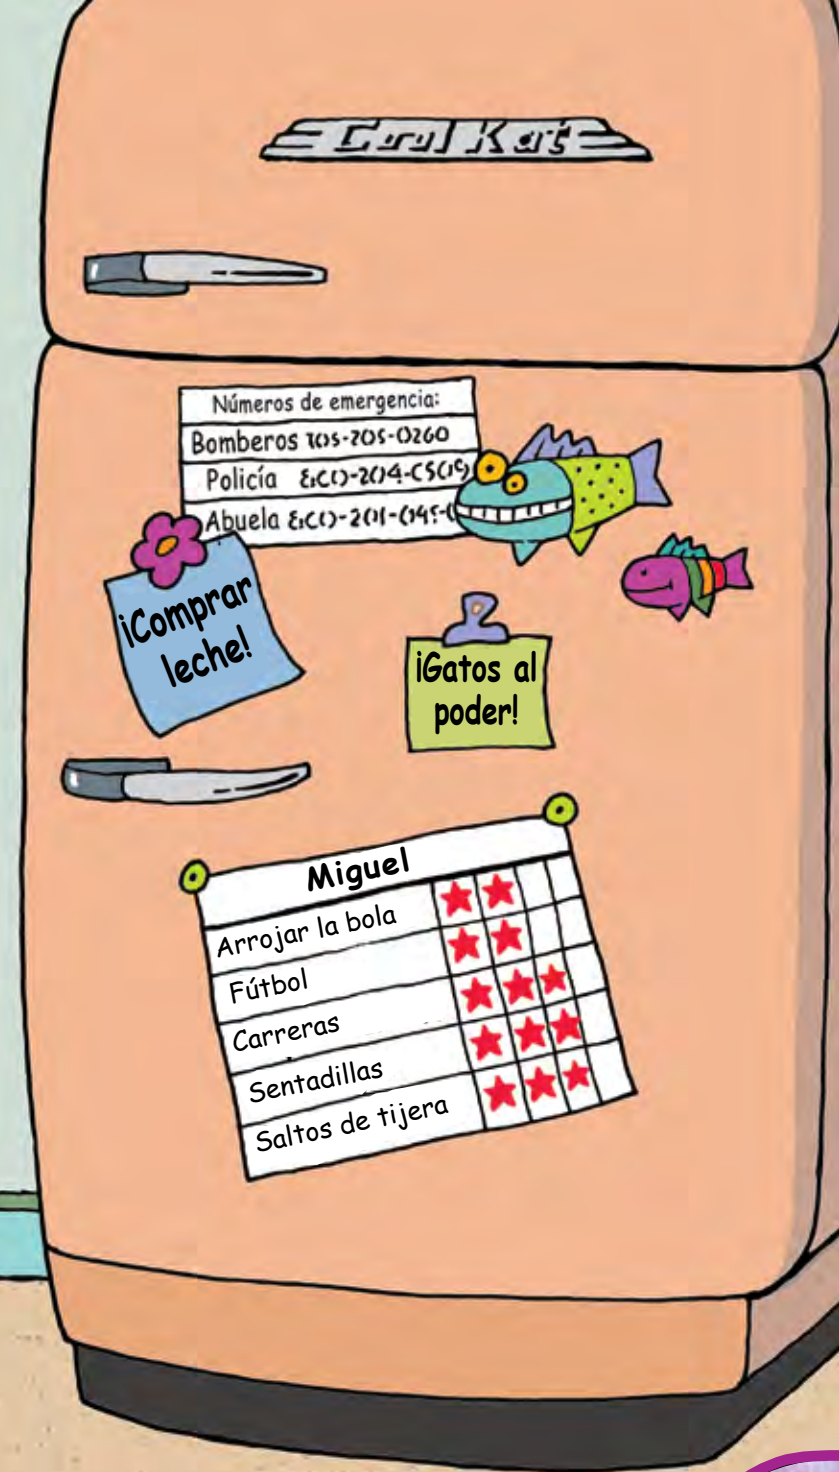 Cool Kat
Números de emergencia:
Bomberos
Policía
Abuela
¡Comprar
leche!
¡Gatos al
poder!
Miguel
Arrojar la bola
Fútbol
Carreras
Sentadillas
Saltos de tijera